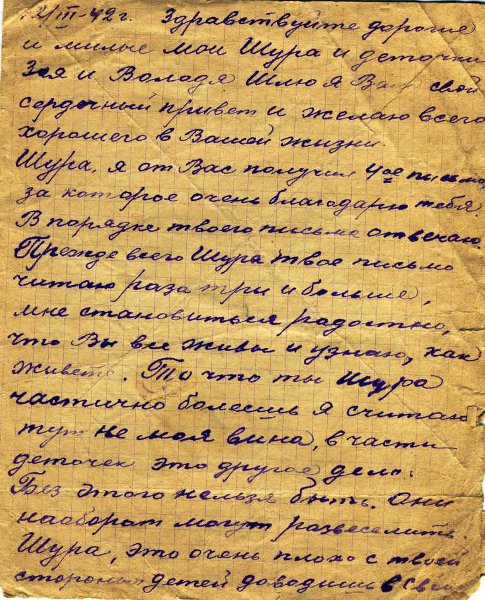 2/III-42 г. Здравствуйте дорогие
и милые мои Шура и деточки
Зоя и Володя Шлю я Вам свой
сердечный привет и желаю всего
хорошего в Вашей жизни.
Шура, я от Вас получил 4ое письмо,
за которое очень благодарю тебя.
В порядке твоего письма отвечаю.
Прежде всего Шура твое письмо
читаю раза три и больше,
мне становиться радостно,
что Вы все живы и узнаю, как
живете. То что ты Шура
частично болеешь я считаю
тут не моя вина, в части
деточек это другое дело.
Без этого нельзя быть. Они
наоборот могут развеселить.
Шура, это очень плохо с твоей
стороны детей доводишь в